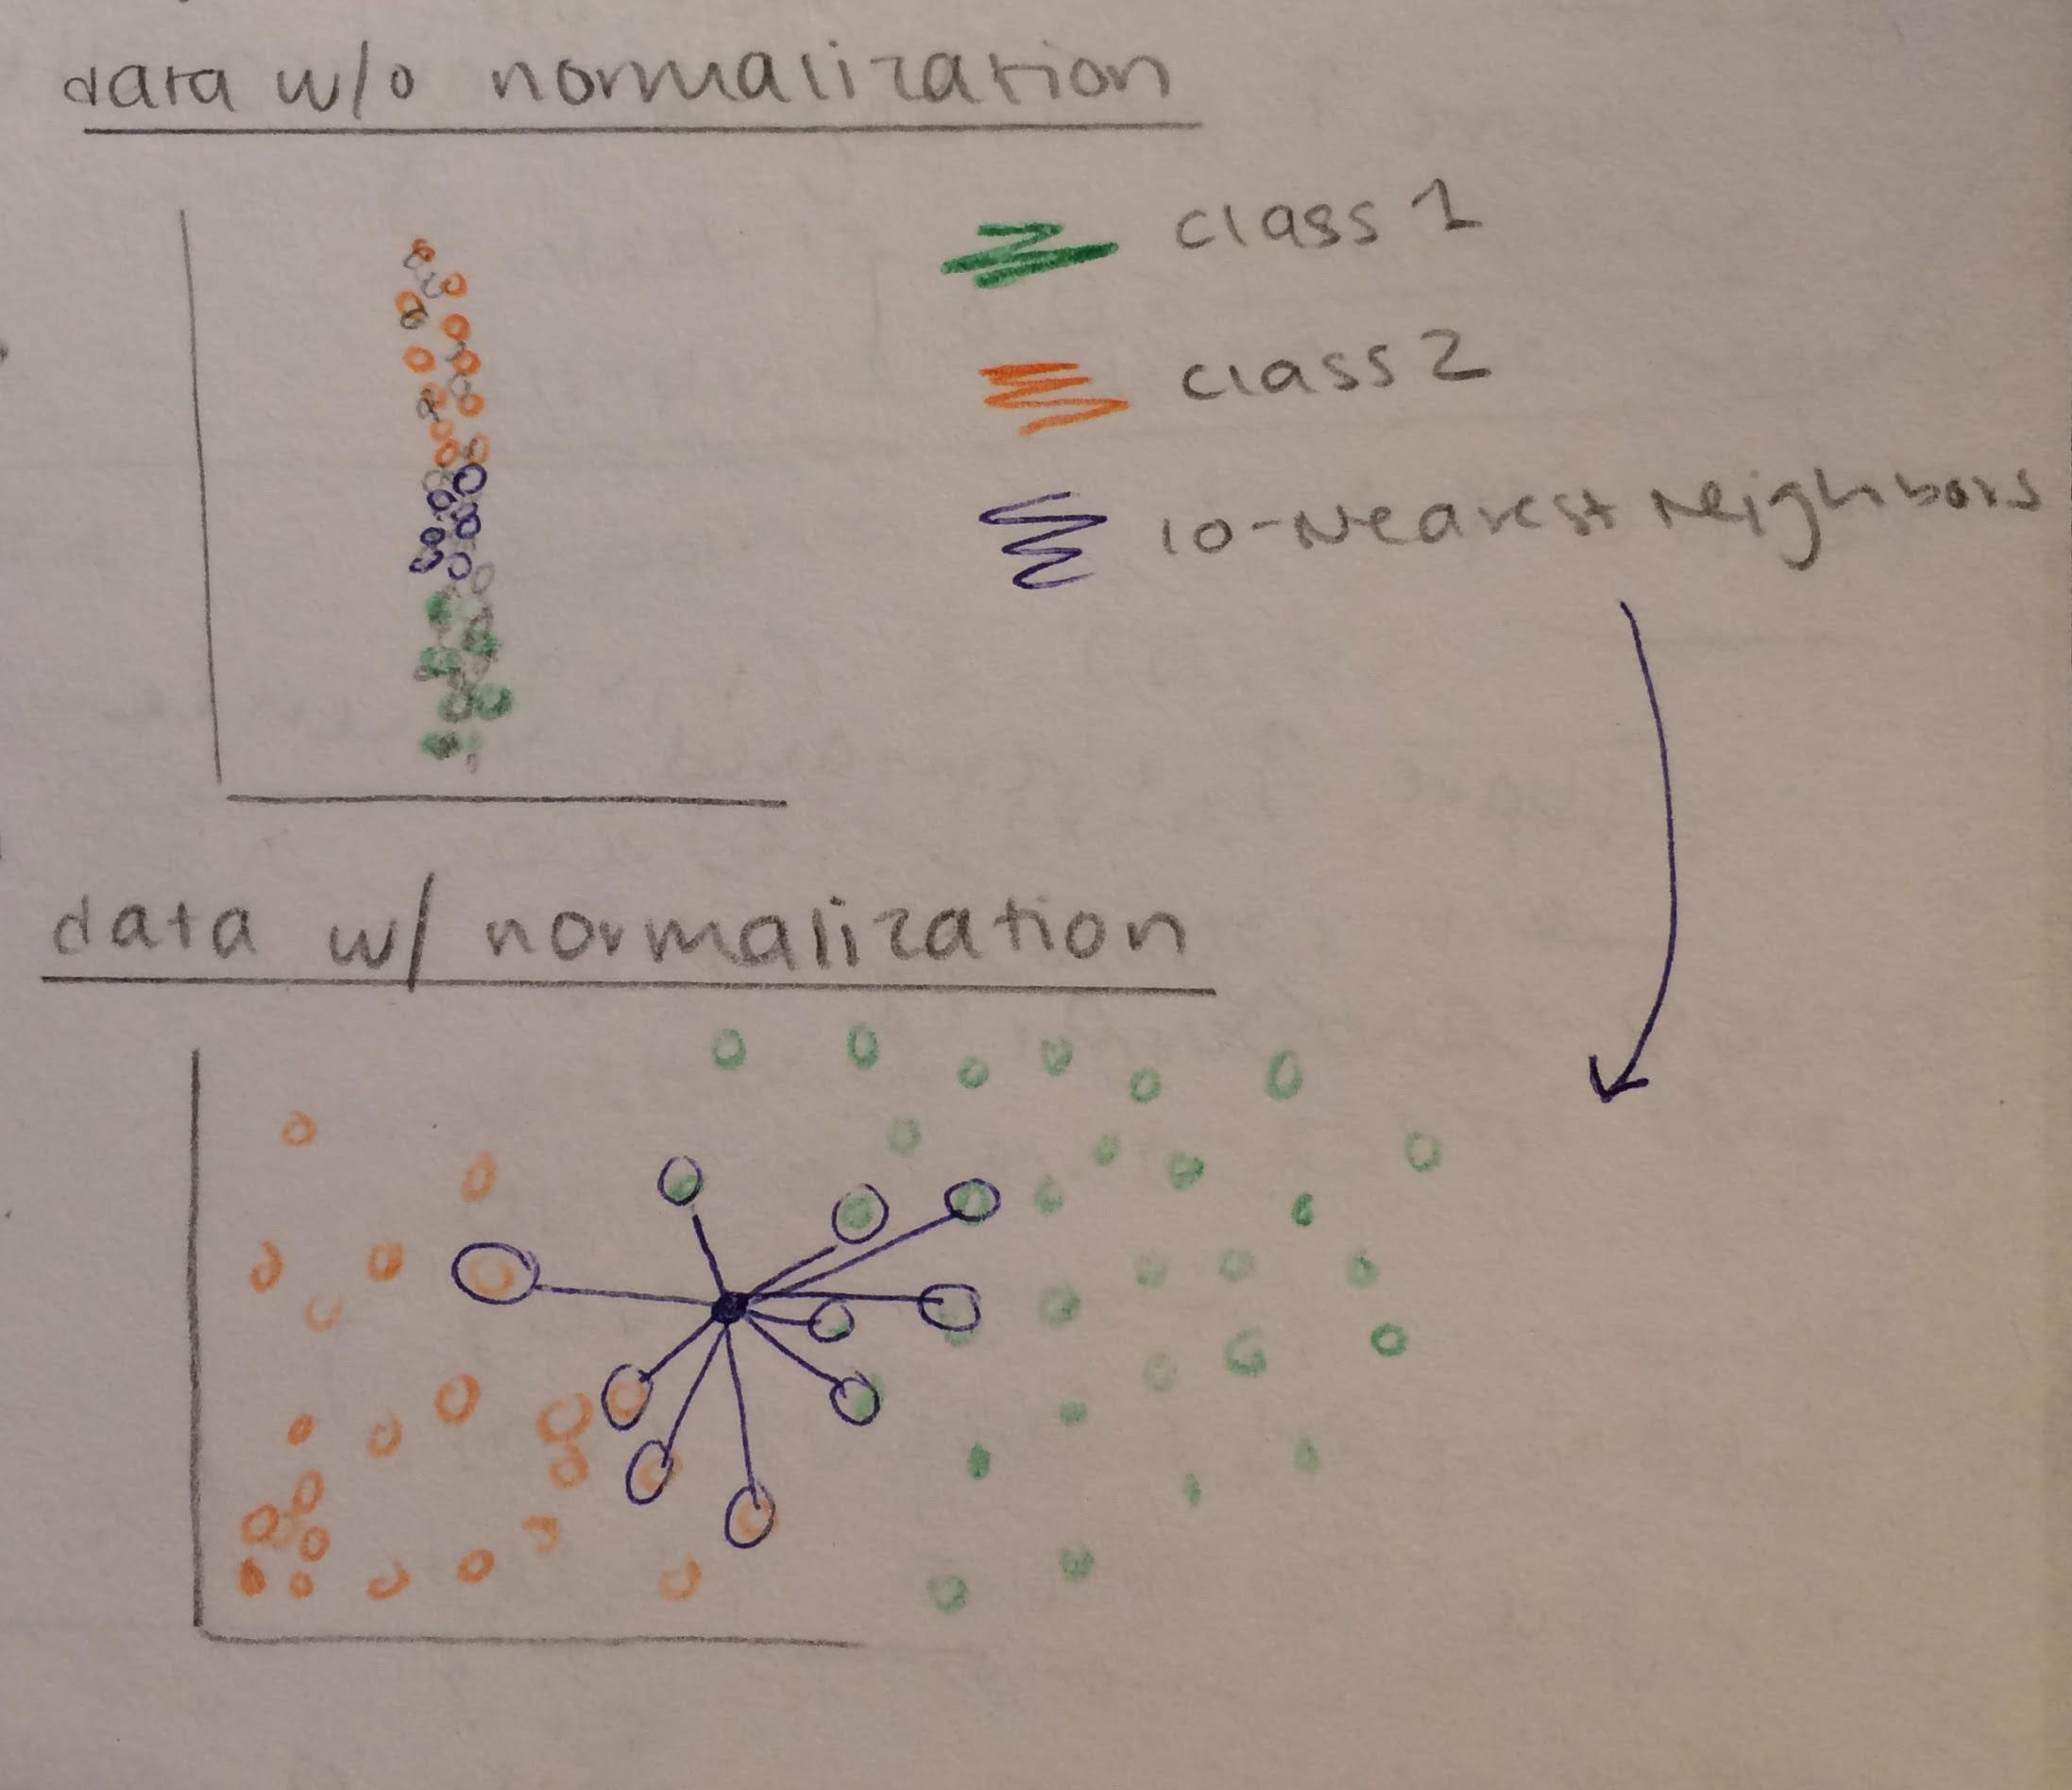 data w/o normalization
class 1
class 2
10-Nearest Neighbors
data w/ normalization